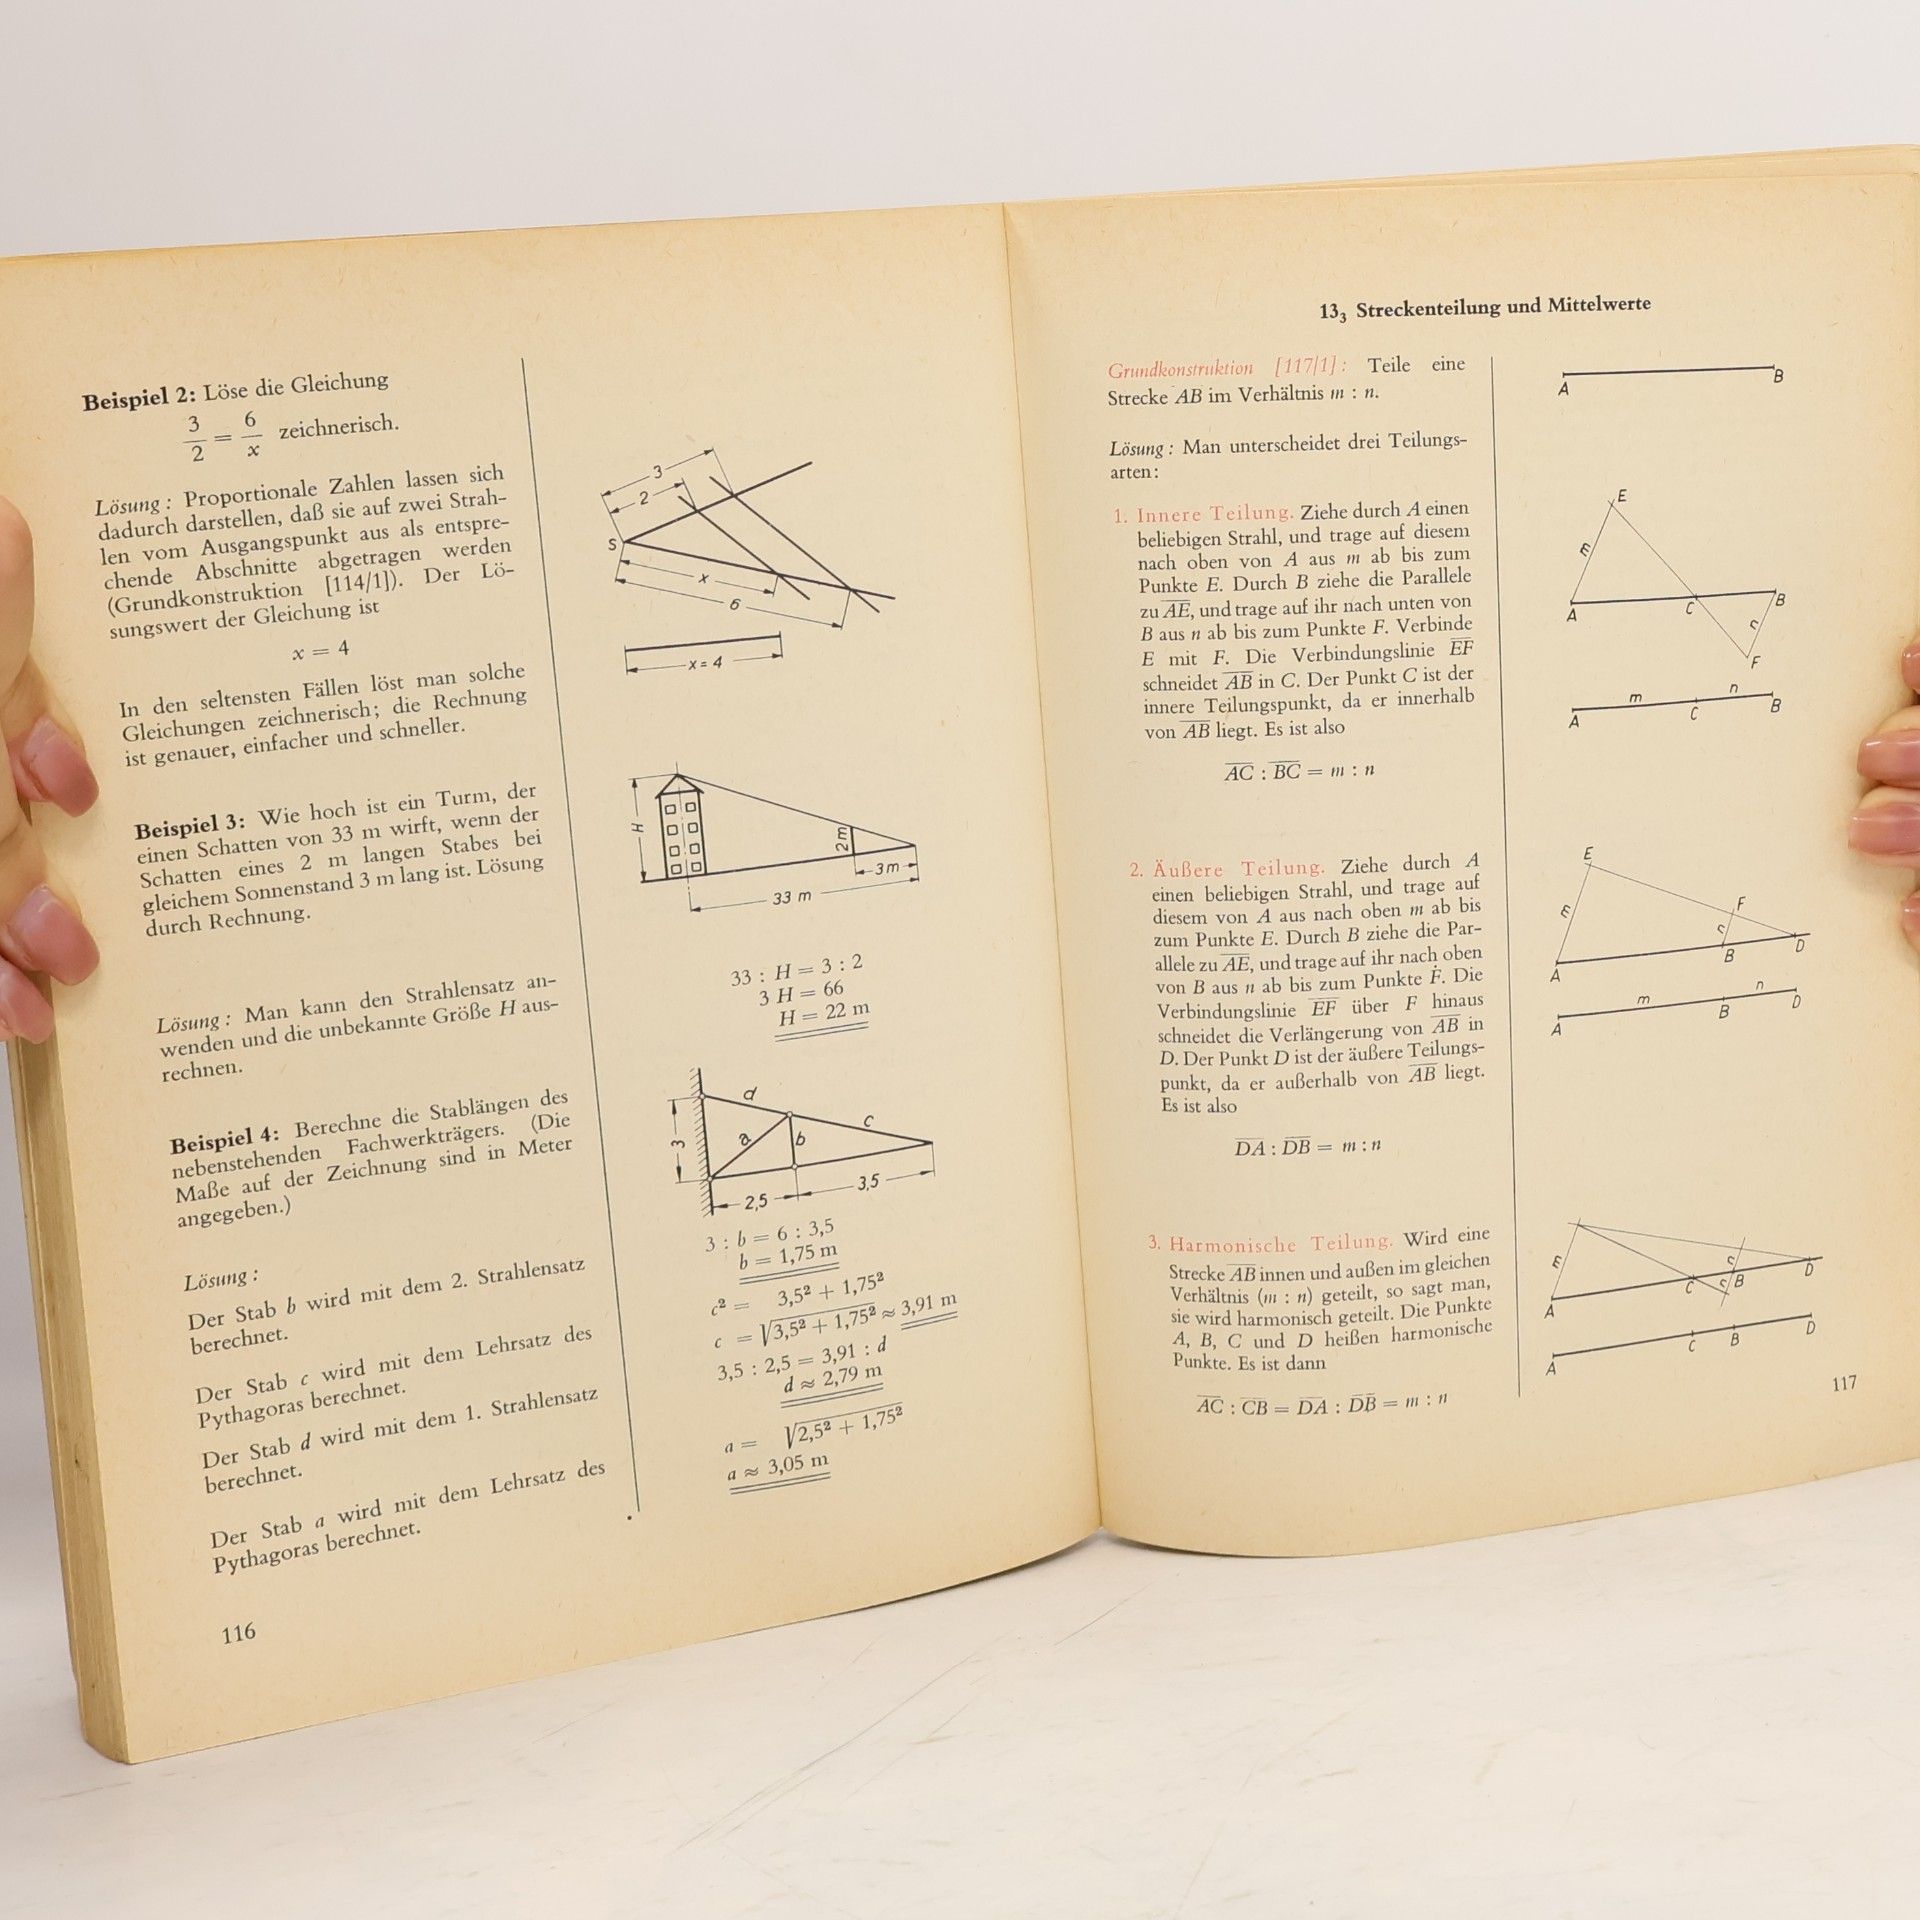 Beispiel 2: Löse die Gleichung
3/2 = 6/x zeichnerisch.
Lösung: Proportionale Zahlen lassen sich
dadurch darstellen, daß sie auf zwei Strah-
len vom Ausgangspunkt aus als entspre-
chende Abschnitte abgetragen werden
(Grundkonstruktion [114/1]). Der Lö-
sungswert der Gleichung ist
x = 4
In den seltensten Fällen löst man solche
Gleichungen zeichnerisch; die Rechnung
ist genauer, einfacher und schneller.
3
2
S
x
6
x = 4
Beispiel 3: Wie hoch ist ein Turm, der
einen Schatten von 33 m wirft, wenn der
Schatten eines 2 m langen Stabes bei
gleichem Sonnenstand 3 m lang ist. Lösung
durch Rechnung.
H
2m
3m
33 m
Lösung: Man kann den Strahlensatz an-
wenden und die unbekannte Größe H aus-
rechnen.
33 : H = 3 : 2
3 H = 66
H = 22 m
Beispiel 4: Berechne die Stablängen des
nebenstehenden Fachwerkträgers. (Die
Maße auf der Zeichnung sind in Meter
angegeben.)
d
c
3
a
b
2,5
3,5
Lösung:
Der Stab b wird mit dem 2. Strahlensatz
berechnet.
Der Stab c wird mit dem Lehrsatz des
Pythagoras berechnet.
Der Stab d wird mit dem 1. Strahlensatz
berechnet.
Der Stab a wird mit dem Lehrsatz des
Pythagoras berechnet.
3 : b = 6 : 3,5
b = 1,75 m
c² = 3,5² + 1,75²
c = √3,5² + 1,75² ≈ 3,91 m
3,5 : 2,5 = 3,91 : d
d ≈ 2,79 m
a = √2,5² + 1,75²
a ≈ 3,05 m
116
13₃ Streckenteilung und Mittelwerte
Grundkonstruktion [117/1]: Teile eine
Strecke AB im Verhältnis m : n.
A B
Lösung: Man unterscheidet drei Teilungs-
arten:
1. Innere Teilung. Ziehe durch A einen
beliebigen Strahl, und trage auf diesem
nach oben von A aus m ab bis zum
Punkte E. Durch B ziehe die Parallele
zu A̅E̅, und trage auf ihr nach unten von
B aus n ab bis zum Punkte F. Verbinde
E mit F. Die Verbindungslinie E̅F̅
schneidet A̅B̅ in C. Der Punkt C ist der
innere Teilungspunkt, da er innerhalb
von A̅B̅ liegt. Es ist also
A̅C̅ : B̅C̅ = m : n
E
m
A C B
n
F
m n
A C B
2. Äußere Teilung. Ziehe durch A
einen beliebigen Strahl, und trage auf
diesem von A aus nach oben m ab bis
zum Punkte E. Durch B ziehe die Par-
allele zu A̅E̅, und trage auf ihr nach oben
von B aus n ab bis zum Punkte F. Die
Verbindungslinie E̅F̅ über F hinaus
schneidet die Verlängerung von A̅B̅ in
D. Der Punkt D ist der äußere Teilungs-
punkt, da er außerhalb von A̅B̅ liegt.
Es ist also
D̅A̅ : D̅B̅ = m : n
E
m
F
n
A B D
m n
A B D
3. Harmonische Teilung. Wird eine
Strecke A̅B̅ innen und außen im gleichen
Verhältnis (m : n) geteilt, so sagt man,
sie wird harmonisch geteilt. Die Punkte
A, B, C und D heißen harmonische
Punkte. Es ist dann
A̅C̅ : C̅B̅ = D̅A̅ : D̅B̅ = m : n
m
n
A C n B D
A C B D
117